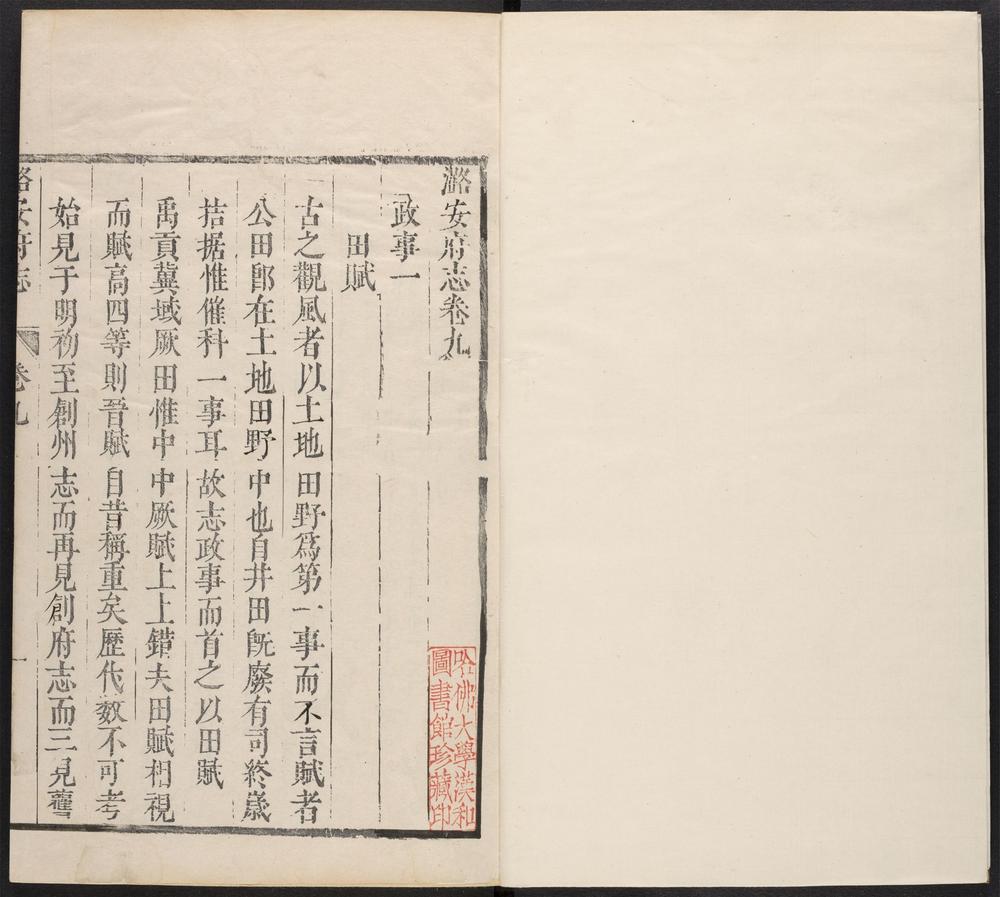 潞安府志卷九
政事一
田賦
古之觀風者以土地田野爲第一事而不言賦者
公田卽在土地田野中也自井田旣廢有司終嵗
拮据惟催科一事耳故志政事而首之以田賦
禹貢冀域厥田惟中中厥賦上上錯夫田賦相視
而賦高四等則吾賦自昔稱重矣歷代數不可考
始見于明初至創州志而再見創府志而三見
潞安府志
卷九
一
哈佛大學漢和
圖書館珍藏印